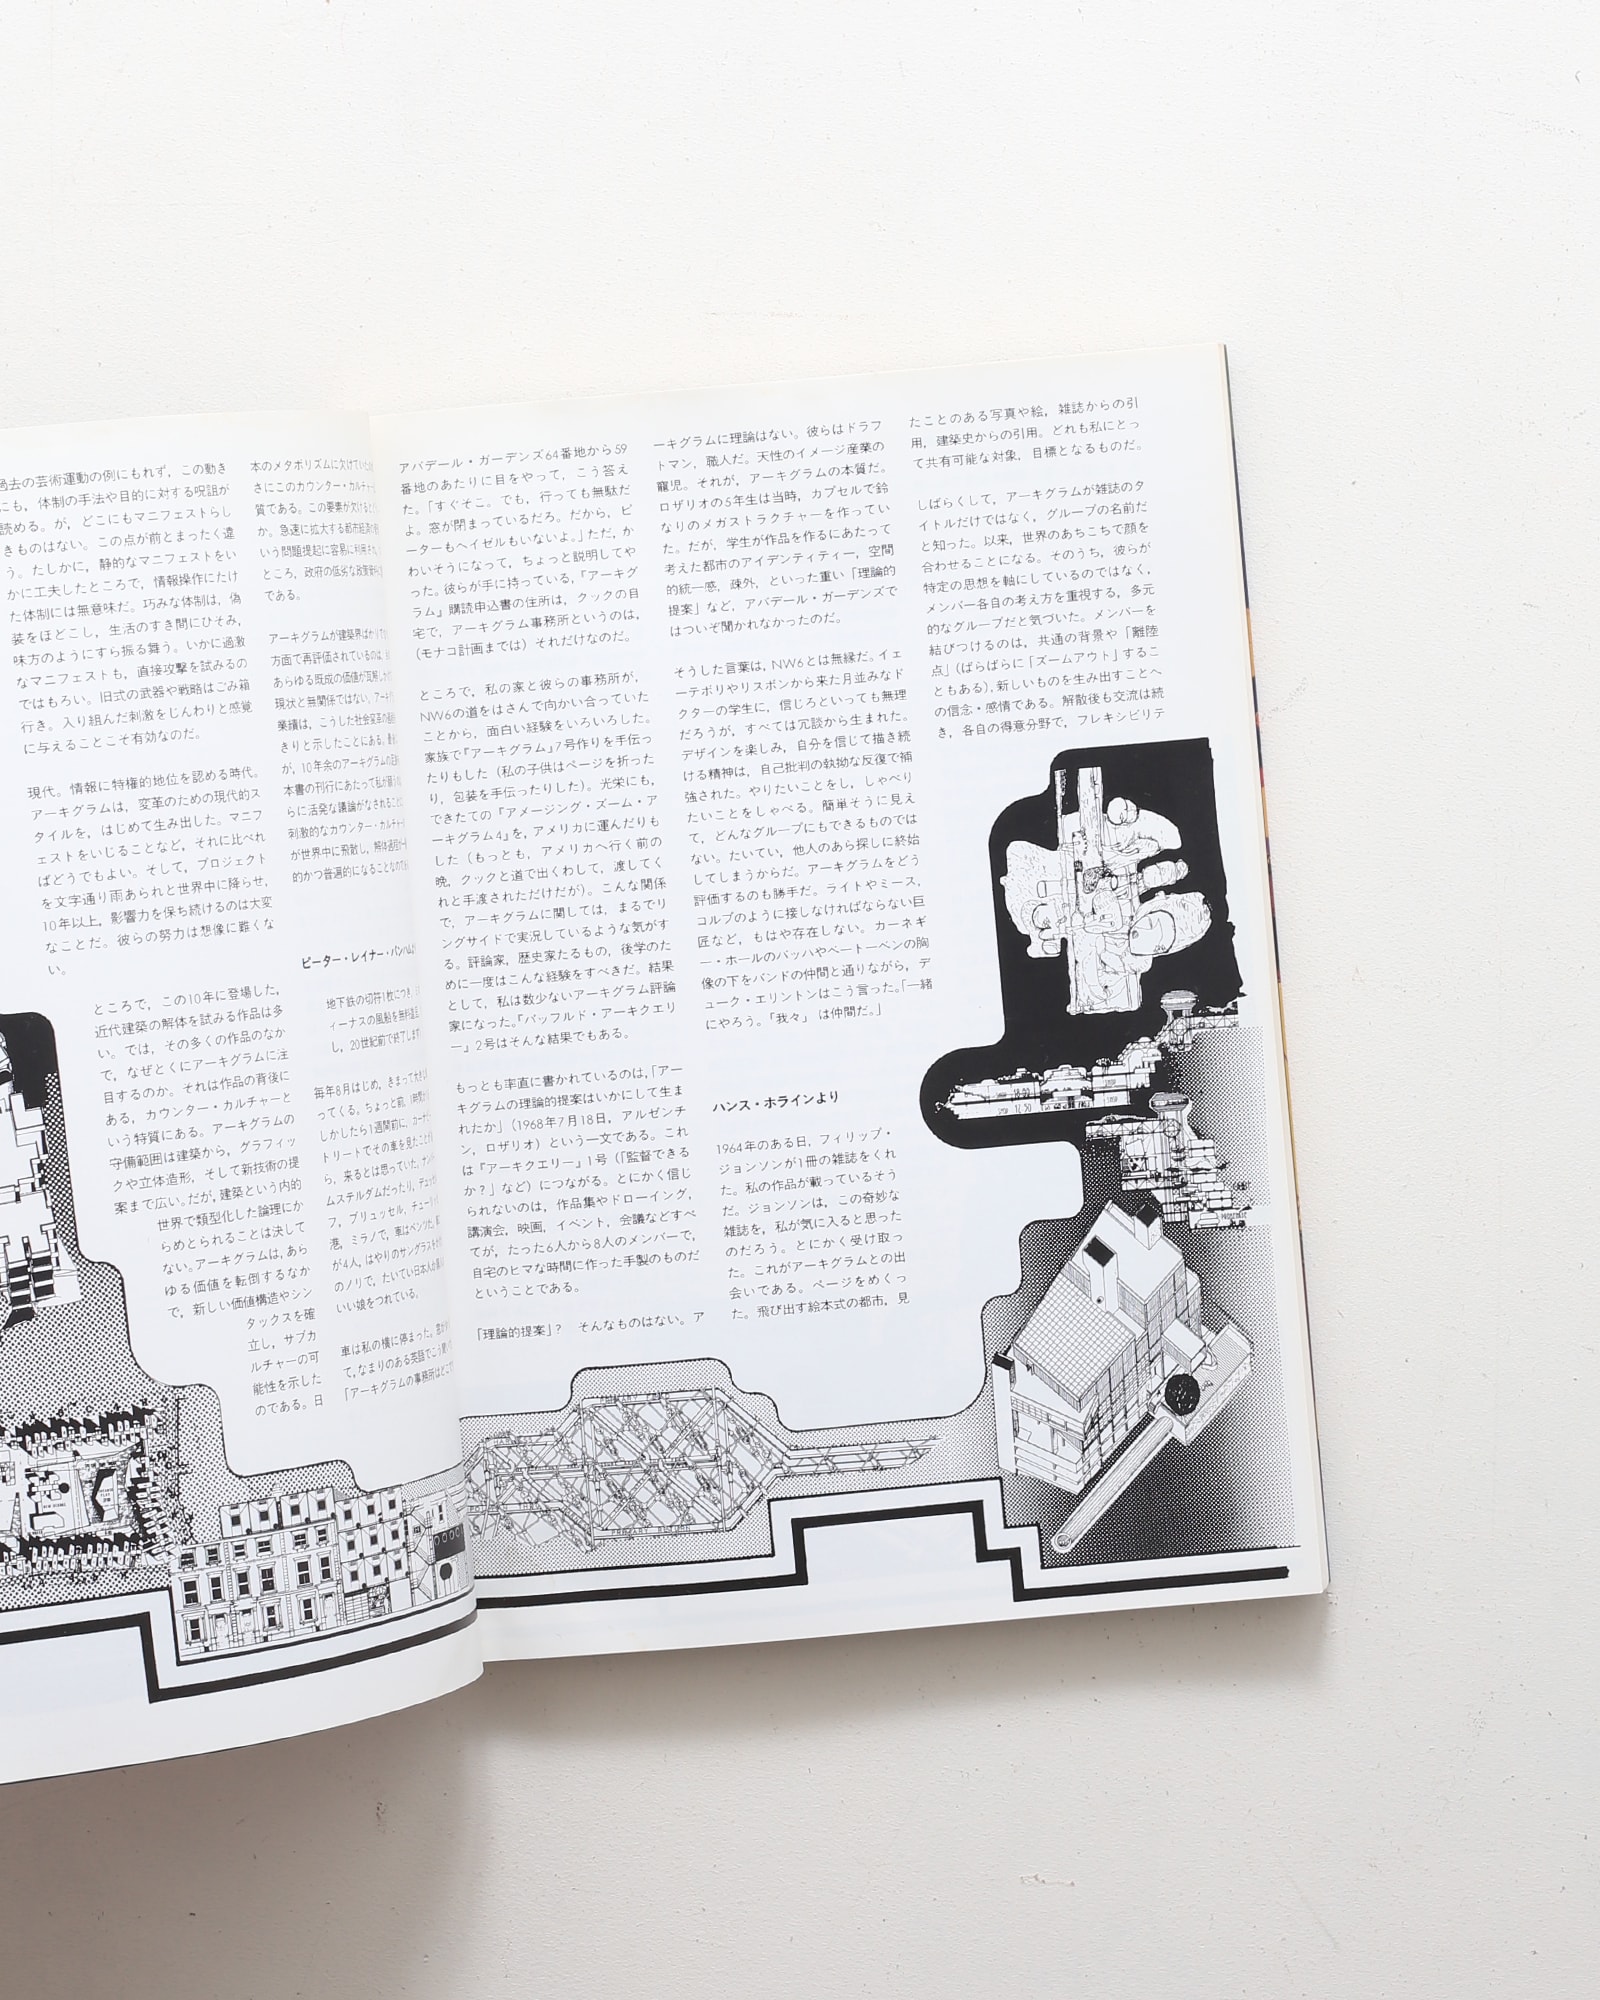 過去の芸術運動の例にもれず，この動き
にも，体制の手法や目的に対する呪詛が
読める。が，どこにもマニフェストらし
きものはない。この点が前とまったく違
う。たしかに，静的なマニフェストをい
かに工夫したところで，情報操作にたけ
た体制には無意味だ。巧みな体制は，偽
装をほどこし，生活のすき間にひそみ，
味方のようにすら振る舞う。いかに過激
なマニフェストも，直接攻撃を試みるの
ではもろい。旧式の武器や戦略はごみ箱
行き。入り組んだ刺激をじんわりと感覚
に与えることこそ有効なのだ。
現代。情報に特権的地位を認める時代。
アーキグラムは，変革のための現代的ス
タイルを，はじめて生み出した。マニフ
ェストをいじることなど，それに比べれ
ばどうでもよい。そして，プロジェクト
を文字通り雨あられと世界中に降らせ，
10年以上，影響力を保ち続けるのは大変
なことだ。彼らの努力は想像に難くな
い。
ところで，この10年に登場した，
近代建築の解体を試みる作品は多
い。では，その多くの作品のなか
で，なぜとくにアーキグラムに注
目するのか。それは作品の背後に
ある，カウンター・カルチャーと
いう特質にある。アーキグラムの
守備範囲は建築から，グラフィッ
クや立体造形，そして新技術の提
案まで広い。だが，建築という内的
世界で類型化した論理にか
らめとられることは決して
ない。アーキグラムは，あら
ゆる価値を転倒するなか
で，新しい価値構造やシン
タックスを確
立し，サブカ
ルチャーの可
能性を示した
のである。日
本のメタボリズムに欠けていた
さにこのカウンター・カルチャー
質である。この要素が欠けると
か。急速に拡大する都市経済の
いう問題提起に容易に利用され
ところ，政府の低劣な政策
である。
アーキグラムが建築界ばかり
方面で再評価されているのは，
あらゆる既成の価値が瓦解し
現状と無関係ではない。アー
業績は，こうした社会変革の
きりと示したことにある。
が，10年余のアーキグラムの
本書の刊行にあたって私が
らに活発な議論がなされること
刺激的なカウンター・カルチ
が世界中に飛散し，解体
的かつ普遍的になることな
ピーター・レイナー・バンハム
地下鉄の切符1枚につき，
ィーナスの風船を無料
し，20世紀前で終了します
毎年8月はじめ，きまって大き
ってくる。ちょっと前，
しかしたら1週間前に，カーナ
トリートでその車を見たことが
ら，来るとは思っていた。ナン
ムステルダムだったり，チュ
フ，ブリュッセル，チュー
港，ミラノで，車はベンツだ
が4人，はやりのサングラスを
のノリで，たいてい日本人か
いい娘をつれている。
車は私の横に停まった。窓が
て，なまりのある英語でこう
「アーキグラムの事務所はどこ
アバデール・ガーデンズ64番地から59
番地のあたりに目をやって，こう答え
た。「すぐそこ。でも，行っても無駄だ
よ。窓が閉まっているだろ。だから，ピ
ーターもヘイゼルもいないよ。」ただ，か
わいそうになって，ちょっと説明してや
った。彼らが手に持っている，『アーキグ
ラム』購読申込書の住所は，クックの自
宅で，アーキグラム事務所というのは，
（モナコ計画までは）それだけなのだ。
ところで，私の家と彼らの事務所が，
NW6の道をはさんで向かい合っていた
ことから，面白い経験をいろいろした。
家族で『アーキグラム』7号作りを手伝っ
たりもした（私の子供はページを折った
り，包装を手伝ったりした）。光栄にも，
できたての『アメージング・ズーム・ア
ーキグラム4』を，アメリカに運んだりも
した（もっとも，アメリカへ行く前の
晩，クックと道で出くわして，渡してく
れと手渡されただけだが）。こんな関係
で，アーキグラムに関しては，まるでリ
ングサイドで実況しているような気がす
る。評論家，歴史家たるもの，後学のた
めに一度はこんな経験をすべきだ。結果
として，私は数少ないアーキグラム評論
家になった。『バッフルド・アーキクエリ
ー』2号はそんな結果でもある。
もっとも率直に書かれているのは，「アー
キグラムの理論的提案はいかにして生ま
れたか」（1968年7月18日，アルゼンチ
ン，ロザリオ）という一文である。これ
は『アーキクエリー』1号（「監督できる
か？」など）につながる。とにかく信じ
られないのは，作品集やドローイング，
講演会，映画，イベント，会議などすべ
てが，たった6人から8人のメンバーで，
自宅のヒマな時間に作った手製のものだ
ということである。
「理論的提案」？　そんなものはない。ア
ーキグラムに理論はない。彼らはドラフ
トマン，職人だ。天性のイメージ産業の
寵児。それが，アーキグラムの本質だ。
ロザリオの5年生は当時，カプセルで鈴
なりのメガストラクチャーを作ってい
た。だが，学生が作品を作るにあたって
考えた都市のアイデンティティー，空間
的統一感，疎外，といった重い「理論的
提案」など，アバデール・ガーデンズで
はついぞ聞かれなかったのだ。
そうした言葉は，NW6とは無縁だ。イェ
ーテボリやリスボンから来た月並みなド
クターの学生に，信じろといっても無理
だろうが，すべては冗談から生まれた。
デザインを楽しみ，自分を信じて描き続
ける精神は，自己批判の執拗な反復で補
強された。やりたいことをし，しゃべり
たいことをしゃべる。簡単そうに見え
て，どんなグループにもできるものでは
ない。たいてい，他人のあら探しに終始
してしまうからだ。アーキグラムをどう
評価するのも勝手だ。ライトやミース，
コルブのように接しなければならない巨
匠など，もはや存在しない。カーネギ
ー・ホールのバッハやベートーベンの胸
像の下をバンドの仲間と通りながら，デ
ューク・エリントンはこう言った。「一緒
にやろう。「我々」は仲間だ。」
ハンス・ホラインより
1964年のある日，フィリップ・
ジョンソンが1冊の雑誌をくれ
た。私の作品が載っているそう
だ。ジョンソンは，この奇妙な
雑誌を，私が気に入ると思った
のだろう。とにかく受け取っ
た。これがアーキグラムとの出
会いである。ページをめくっ
た。飛び出す絵本式の都市，見
たことのある写真や絵，雑誌からの引
用，建築史からの引用。どれも私にとっ
て共有可能な対象，目標となるものだ。
しばらくして，アーキグラムが雑誌のタ
イトルだけではなく，グループの名前だ
と知った。以来，世界のあちこちで顔を
合わせることになる。そのうち，彼らが
特定の思想を軸にしているのではなく，
メンバー各自の考え方を重視する，多元
的なグループだと気づいた。メンバーを
結びつけるのは，共通の背景や「離陸
点」（ばらばらに「ズームアウト」するこ
ともある），新しいものを生み出すことへ
の信念・感情である。解散後も交流は続
き，各自の得意分野で，フレキシビリテ